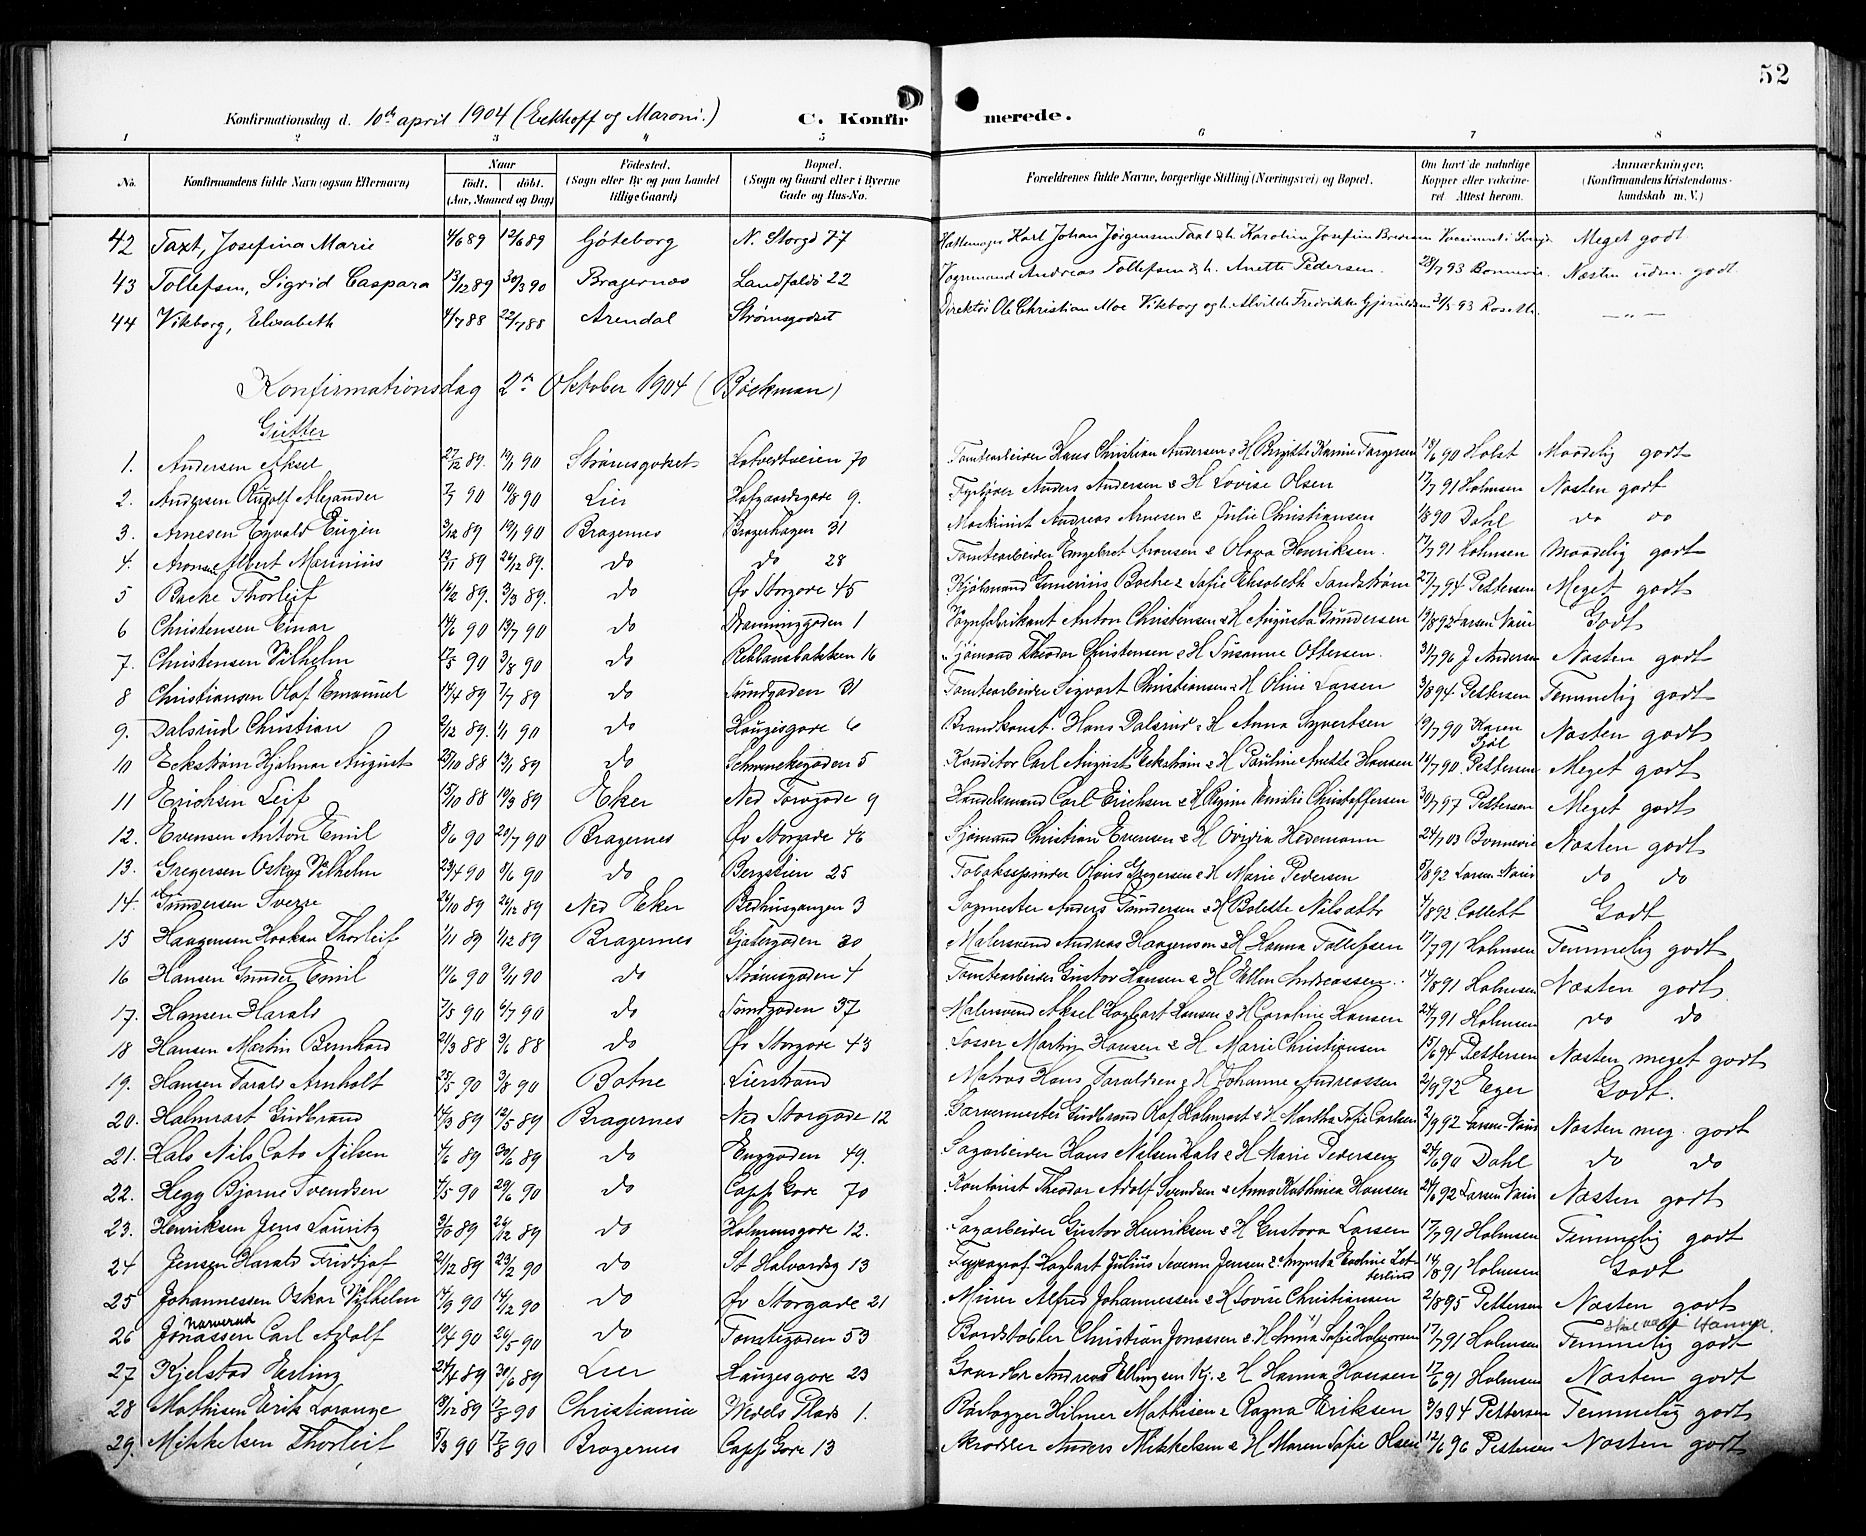 52
Konfirmationsdag d. 10de april 1904 (Eckhoff og Maroni.) C. Konfirmerede.
1 2 3 4 5 6 7 8
No. Konfirmandens fulde Navn (ogsaa Efternavn) Naar født. døbt. (Aar, Maaned og Dag) Fødested. (Sogn eller By og paa Landet tillige Gaard) Bopæl. (Sogn og Gaard eller i Byerne Gade og Hus-No. Forældrenes fulde Navne, borgerlige Stilling (Næringsvei) og Bopæl. Om havt de naturlige Kopper eller vakcineret. Attest herom. Anmærkninger. (Konfirmandens Kristendomskundskab m. V.)
42 Taxt, Josefina Marie 4/6 89 12/6 89 Göteborg N. Storgd 77 Karl Johan Jörgensen Taxt & h. Karoline Josefine Meget godt
43 Tollefsen, Sigrid Caspara 13/12 89 30/3 90 Bragernæs Landfaldö 22 Vognmand Andreas Tollefsen & h. Anette Pedersen. 28/7 93 Bonnevie. Næsten udm. godt.
44 Vikborg, Elisabeth 4/7 88 22/7 88 Arendal Strömsgodset Direktör Ole Christian Moe Vikborg og h. Alvilde Fredrikke 93 — " —
Konfirmationsdag 2n Oktober 1904 (Böckman)
Gutter
1. Andersen Aksel 27/12 89. 19/1 90 Strömsgodset 70 Tomtearbeider Hans Christian Andersen & H Birgitte Karine 13/6 90 Holst Maadelig godt
2. Andersen Rudolf Alexander 7/7 90 10/8 90 Lier Hofgaardsgade 9. Fyrböder Anders Andersen & H Lovise Olsen 17/7 91 Holmsen Næsten godt
3. Arnesen Eyvald Eugen 3/12 89 19/1 90 Bragernes Bragerhagen 31 Maskinist Andreas Arnesen & Julie Christiansen 90 Dahl do do
4. Aronsen Albert Marinius 12/11 89 26/12 89. do do 28 Tomtearbeider Engebret Aronsen & Olava Henriksen. 17/7 91 Holmsen Maadelig godt
5 Bache Thorleif 16/2 89. 3/3 89. do Øv Storgade 45 Bache & Sofie Elisabeth Sandström 27/7 94 Pettersen Meget godt
6 Christensen Einar 14/6 90 13/7 90 do Dronninggaden 1 Vognfabrikant Anton Christensen & H Augusta Gundersen 19/8 92 Larsen Næss Godt
7. Christensen Vilhelm 17/5 90 3/8 90 do 16 Sjömand Theodor Christensen & H Susanne Ottersen. 31/7 96 J Andersen Næsten godt
8 Christiansen Olaf Emanuel 14/4 89 7/7 89 do Sundgaden 31 Tomtearbeider Sigvart Christiansen & H Oline Larsen 3/8 94 Pettersen Temmelig godt
9. Dalsrud Christian 2/12 89. 1/1 90 do Haugesgade 6 Brandkonst. Hans Dalsrud & H Anna Syvertsen 19/7 90 Karen Næsten godt
10 Eckström Hjalmar August 25/10 88 13/1 89 do Schwenckegaden 5 Konditor Carl August Eckström & H Pauline Anette Hansen 14/7 90. Pettersen Meget godt
11 Erichsen Leif 15/10 88 10/3 89 Eker Ned Torvgade 9 Handelsmand Carl Erichsen & H Regine Emilie Christoffersen 30/7 97 Pettersen Meget godt
12. Evensen Anton Emil 8/6 90 20/7 90 Bragernes Øv Storgade 46 Sjömand Christian Evensen & H Ovidia Hedemann 24/7 03 Bonnevie Næsten godt
13. Gregersen Oskar Vilhelm 23/4 90 8/6 90 do Bergstien 25 Tobaksspinder Olaus Gregersen & H Marie Pedersen 5/8 92 Larsen Næss do do
14. Gundersen Sverre 26/10 89 26/12 89 Ned Eker Bedhusgangen 3 Sagmester Anders Gundersen & H Bolette Nilsdttr 92 Collett Godt
15 Haagensen Haakon Thorleif 1/11 89 1/12 89 Bragernes Gjetergaden 30 Malersvend Andreas Haagensen & H Hanna Tollefsen 17/7 91 Holmsen Temmelig godt
16 Hansen Gunder Emil 11/6 90 9/11 90 do Strömsgaden 4 Tomtearbeider Gustav Hansen & H Ellen Andreassen. 14/8 91 Holmsen Næsten godt
17. Hansen Harald 7/5 90 6/7 90 do Sundgaden 37 Malersvend Aksel Hagbart Hansen & H Caroline Hansen 24/7 91 Holmsen do do
18 Hansen Martin Bernhard 21/3 88 3/6 88 do Øv Storgade 43 Losser Martin Hansen & H Marie Christiansen 15/6 94 Pettersen Næsten meget godt
19. Hansen Tarald Arnholt 25/5 90 3/8 90 Botne Lierstrand Matros Hans Taraldsen & H Johanne Andreassen 2/9 92 Eger Godt.
20. Holmrast Gudbrand 14/3 89 12/5 89 Bragernes Ned Storgade 12 Garvermester Gudbrand Olaf Holmrast & H Martha Sofie Carlsen 2/9 92 Larsen Næss Næsten meg. godt
21. Hals Nils Cato Nilsen 4/6 89 30/6 89 do Enggaden 49. Sagarbeider Hans Nilsen Hals & H Marie Pedersen 24/6 90 Dahl do do
22. Hegg Bjarne Svendsen 4/5 90 29/6 90 do Capp. Gade 70 Kontorist Theodor Adolf Svendsen & Anna Kathinca Hansen 24/6 92 Larsen Næss Næsten godt
23. Henriksen Jens Lauritz 3/10 89 26/12 89 do Holmensgade 12. Sagarbeider Gustav Henriksen & H Gustava Larsen 17/7 91 Holmsen Temmelig godt
24 Jensen Harald Fridtjof 21/12 89 23/2 90 do St Halvardsg 13 Typograf Hagbart Julius Severin Jensen & Augusta Eveline Zetterlund 14/8 91 Holmsen Godt
25 Johannessen Oskar Vilhelm 17/9 90 14/12 90 do Øv Storgade 21 Murer Alfred Johannessen & H Lovise Christiansen 2/8 95 Pettersen Næsten godt
26 Jonassen Narverud Carl Adolf 19/4 90 26/5 90 do Tomtegaden 53 Bordstabler Christian Jonassen & H Anna Sofie Halvorsen 17/7 91 Holmsen Temmelig godt
27 Kjelstad Erling 24/4 89 30/6 89 Lier Haugesgade 23 Andreas Ellingsen Kj. & H Hanna Hansen 17/6 91 Holmsen Næsten godt
28 Mathisen Erik Lorange 19/12 89 7/8 90 Christiania Wedels Plads 1. Rörlægger Hilmer Mathisen & Ragna Eriksen 3/3 04 Pettersen Temmelig godt
29. Mikkelsen Thorleif 5/3 90 17/8 90 Bragernes Capp. Gade 13 Skrædder Anders Mikkelsen & H Maren Sofie Olsen 12/6 96 Pettersen Næsten godt